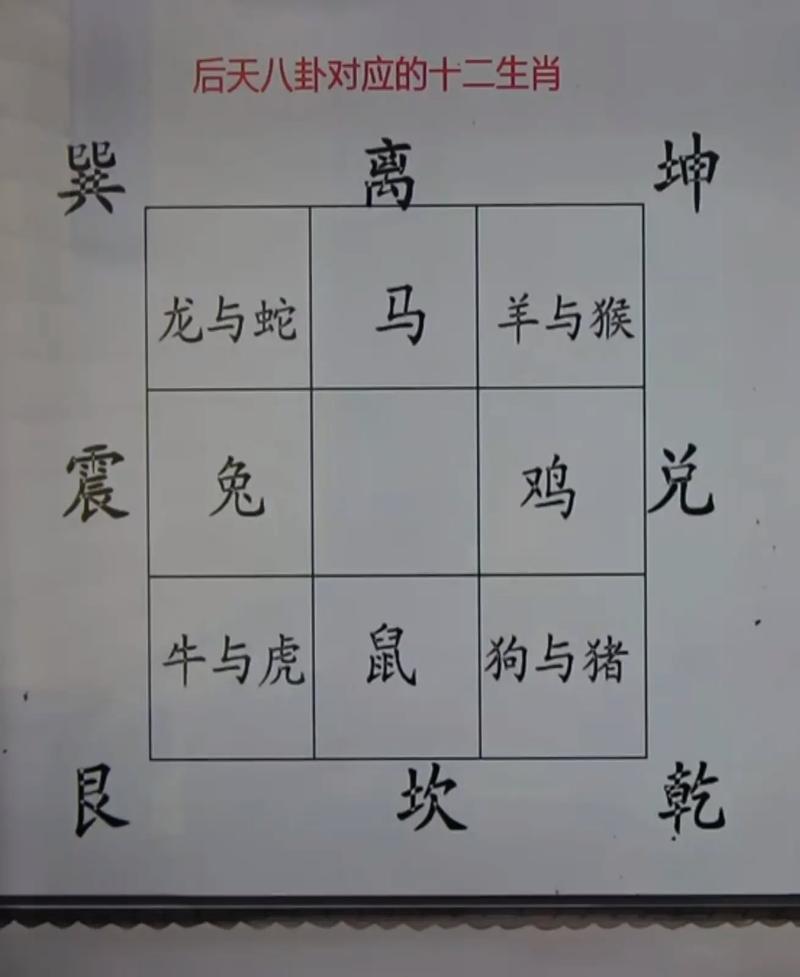 后天八卦对应的十二生肖
巽 离 坤
龙与蛇 马 羊与猴
震 兔 鸡 兑
牛与虎 鼠 狗与猪
艮 坎 乾